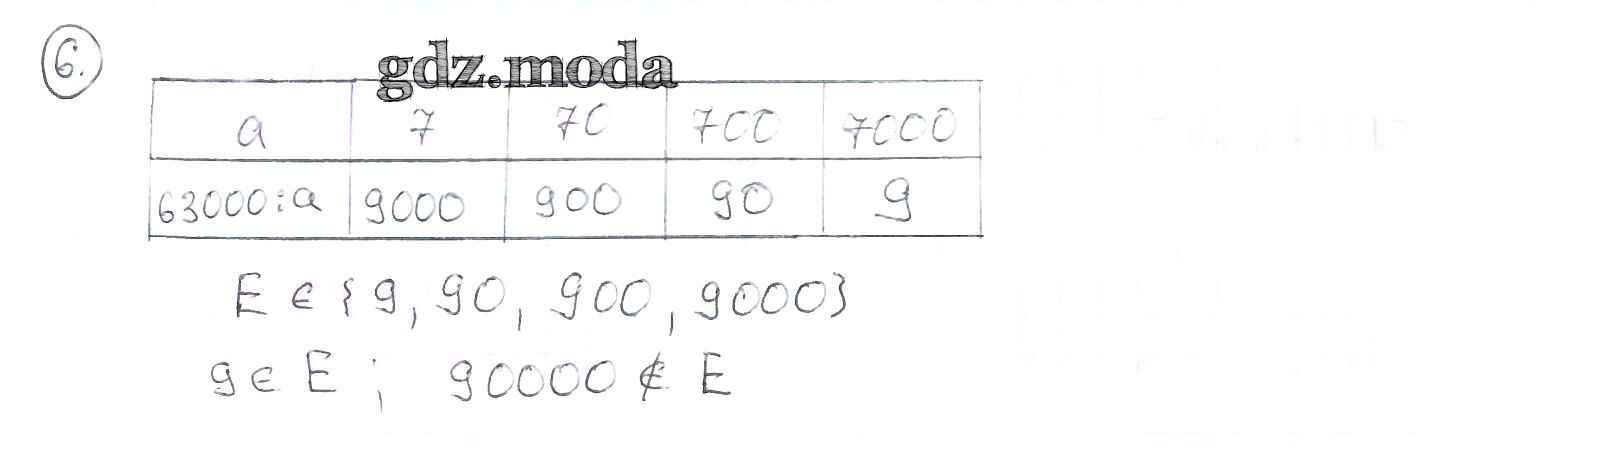 6.
gdz.moda
a 7 70 700 7000
63000:a 9000 900 90 9
E ∈ {9, 90, 900, 9000}
9 ∈ E ; 90000 ∉ E